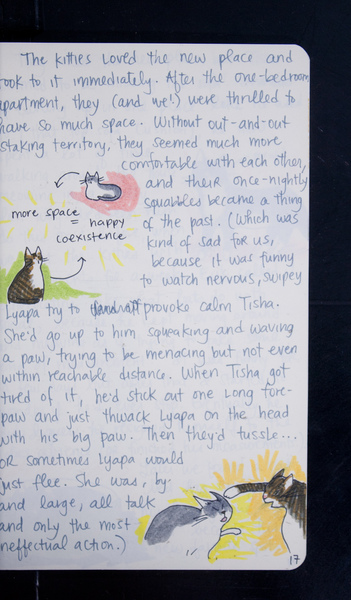 The kitties loved the new place and
took to it immediately. After the one-bedroom
apartment, they (and we!) were thrilled to
have so much space. Without out-and-out
staking territory, they seemed much more
comfortable with each other,
and their once-nightly
squabbles became a thing
of the past. (Which was
kind of sad for us,
because it was funny
to watch nervous, swipey
more space
= happy
coexistence
Lyapa try to provoke calm Tisha.
She'd go up to him squeaking and waving
a paw, trying to be menacing but not even
within reachable distance. When Tisha got
tired of it, he'd stick out one long fore-
paw and just thwack Lyapa on the head
with his big paw. Then they'd tussle...
OR sometimes Lyapa would
just flee. She was, by
and large, all talk
and only the most
ineffectual action.)
17